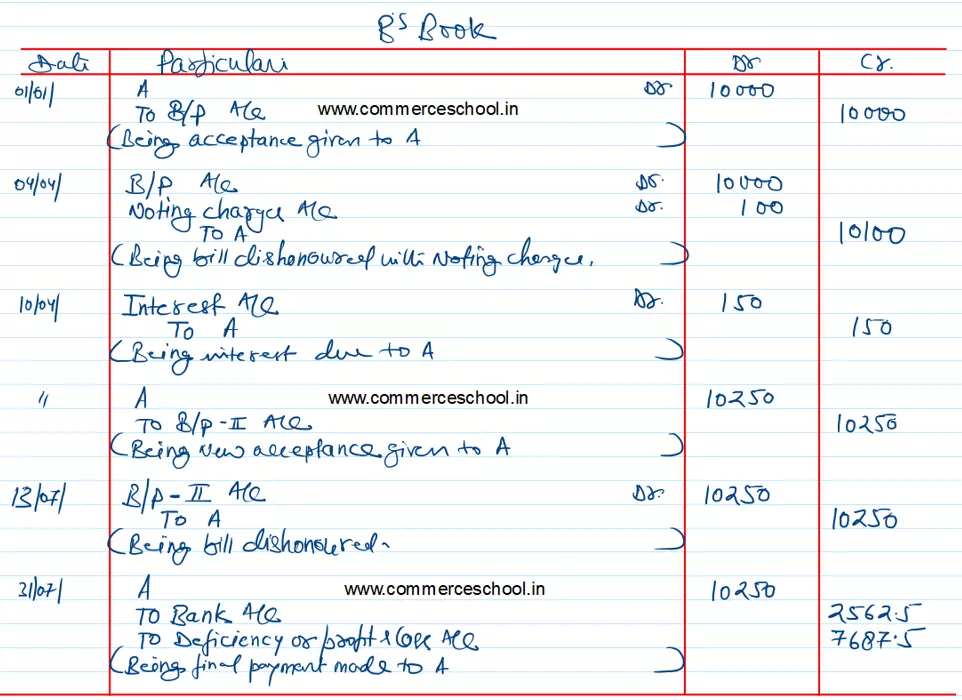 B's Book
Date Particulars Dr Cr.
01/01/ A Dr 10000
To B/P A/c www.commerceschool.in 10000
(Being acceptance given to A)
04/04/ B/P A/c Dr. 10000
Noting charge A/c Dr. 100
To A 10100
(Being bill dishonoured with Noting charge.)
10/04/ Interest A/c Dr. 150
To A 150
(Being interest due to A)
" A www.commerceschool.in 10250
To B/P-II A/c 10250
(Being New acceptance given to A)
13/07/ B/P-II A/c Dr. 10250
To A 10250
(Being bill dishonoured.)
31/07/ A www.commerceschool.in 10250
To Bank A/c 2562.5
To Deficiency or profit & loss A/c 7687.5
(Being final payment made to A)